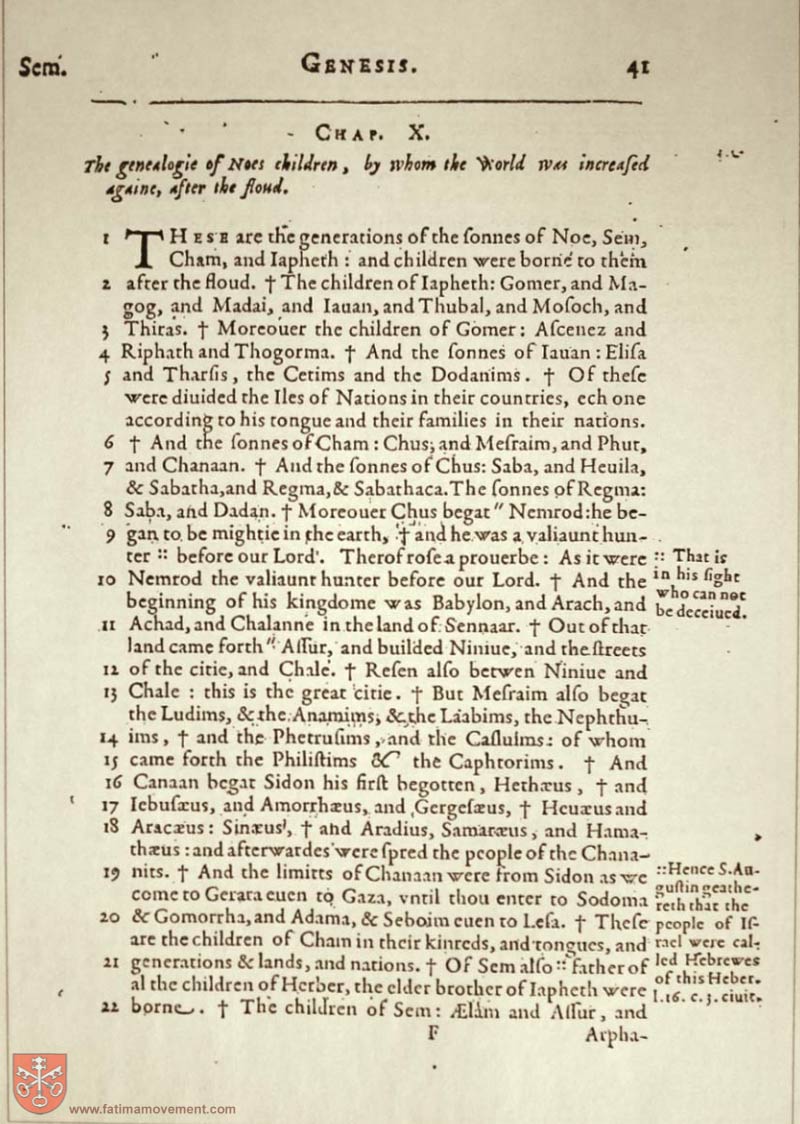 Sem.
GENESIS.
41
CHAP. X.
The genealogie of Noes children, by whom the World was increaſed
againe, after the floud.
1 THESE are the generations of the ſonnes of Noe, Sem,
Cham, and Iapheth : and children were borne to them
2 after the floud. † The children of Iapheth: Gomer, and Ma-
gog, and Madai, and Iauan, and Thubal, and Moſoch, and
3 Thiras. † Moreouer the children of Gomer: Aſcenez and
4 Riphath and Thogorma. † And the ſonnes of Iauan : Eliſa
5 and Tharſis, the Cetims and the Dodanims. † Of theſe
were diuided the Iles of Nations in their countries, ech one
according to his tongue and their families in their nations.
6 † And the ſonnes of Cham : Chus, and Meſraim, and Phut,
7 and Chanaan. † And the ſonnes of Chus: Saba, and Heuila,
& Sabatha, and Regma, & Sabathaca. The ſonnes of Regma:
8 Saba, and Dadan. † Moreouer Chus begat " Nemrod: he be-
9 gan to be mightie in the earth, † and he was a valiaunt hun-
ter :: before our Lord. Therof roſe a prouerbe : As it were
10 Nemrod the valiaunt hunter before our Lord. † And the
beginning of his kingdome was Babylon, and Arach, and
11 Achad, and Chalanne in the land of Sennaar. † Out of that
land came forth " Aſſur, and builded Niniue, and the ſtreets
12 of the citie, and Chale. † Reſen alſo betwen Niniue and
13 Chale : this is the great citie. † But Meſraim alſo begat
the Ludims, & the Anamims, & the Laabims, the Nephthu-
14 ims, † and the Phetruſims, and the Caſluims: of whom
15 came forth the Philiſtims & the Caphtorims. † And
16 Canaan begat Sidon his firſt begotten, Hethæus, † and
17 Iebuſæus, and Amorrhæus, and Gergeſæus, † Heuæus and
18 Aracæus : Sinæus, † and Aradius, Samaræus, and Hama-
thæus : and afterwardes were ſpred the people of the Chana-
19 nits. † And the limitts of Chanaan were from Sidon as we
come to Gerara euen to Gaza, vntil thou enter to Sodoma
20 & Gomorrha, and Adama, & Seboim euen to Leſa. † Theſe
are the children of Cham in their kinreds, and tongues, and
21 generations & lands, and nations. † Of Sem alſo :: father of
al the children of Herber, the elder brother of Iapheth were
22 borne. † The children of Sem: Ælam and Aſſur, and
F
Arpha-
:: That is
in his ſight
who can not
be deceiued.
:: Hence S. Au-
guſtin geathe-
reth that the
people of Iſ-
rael were cal-
led Hebrewes
of this Heber.
l. 16. c. 3. ciuit.
www.fatimamovement.com